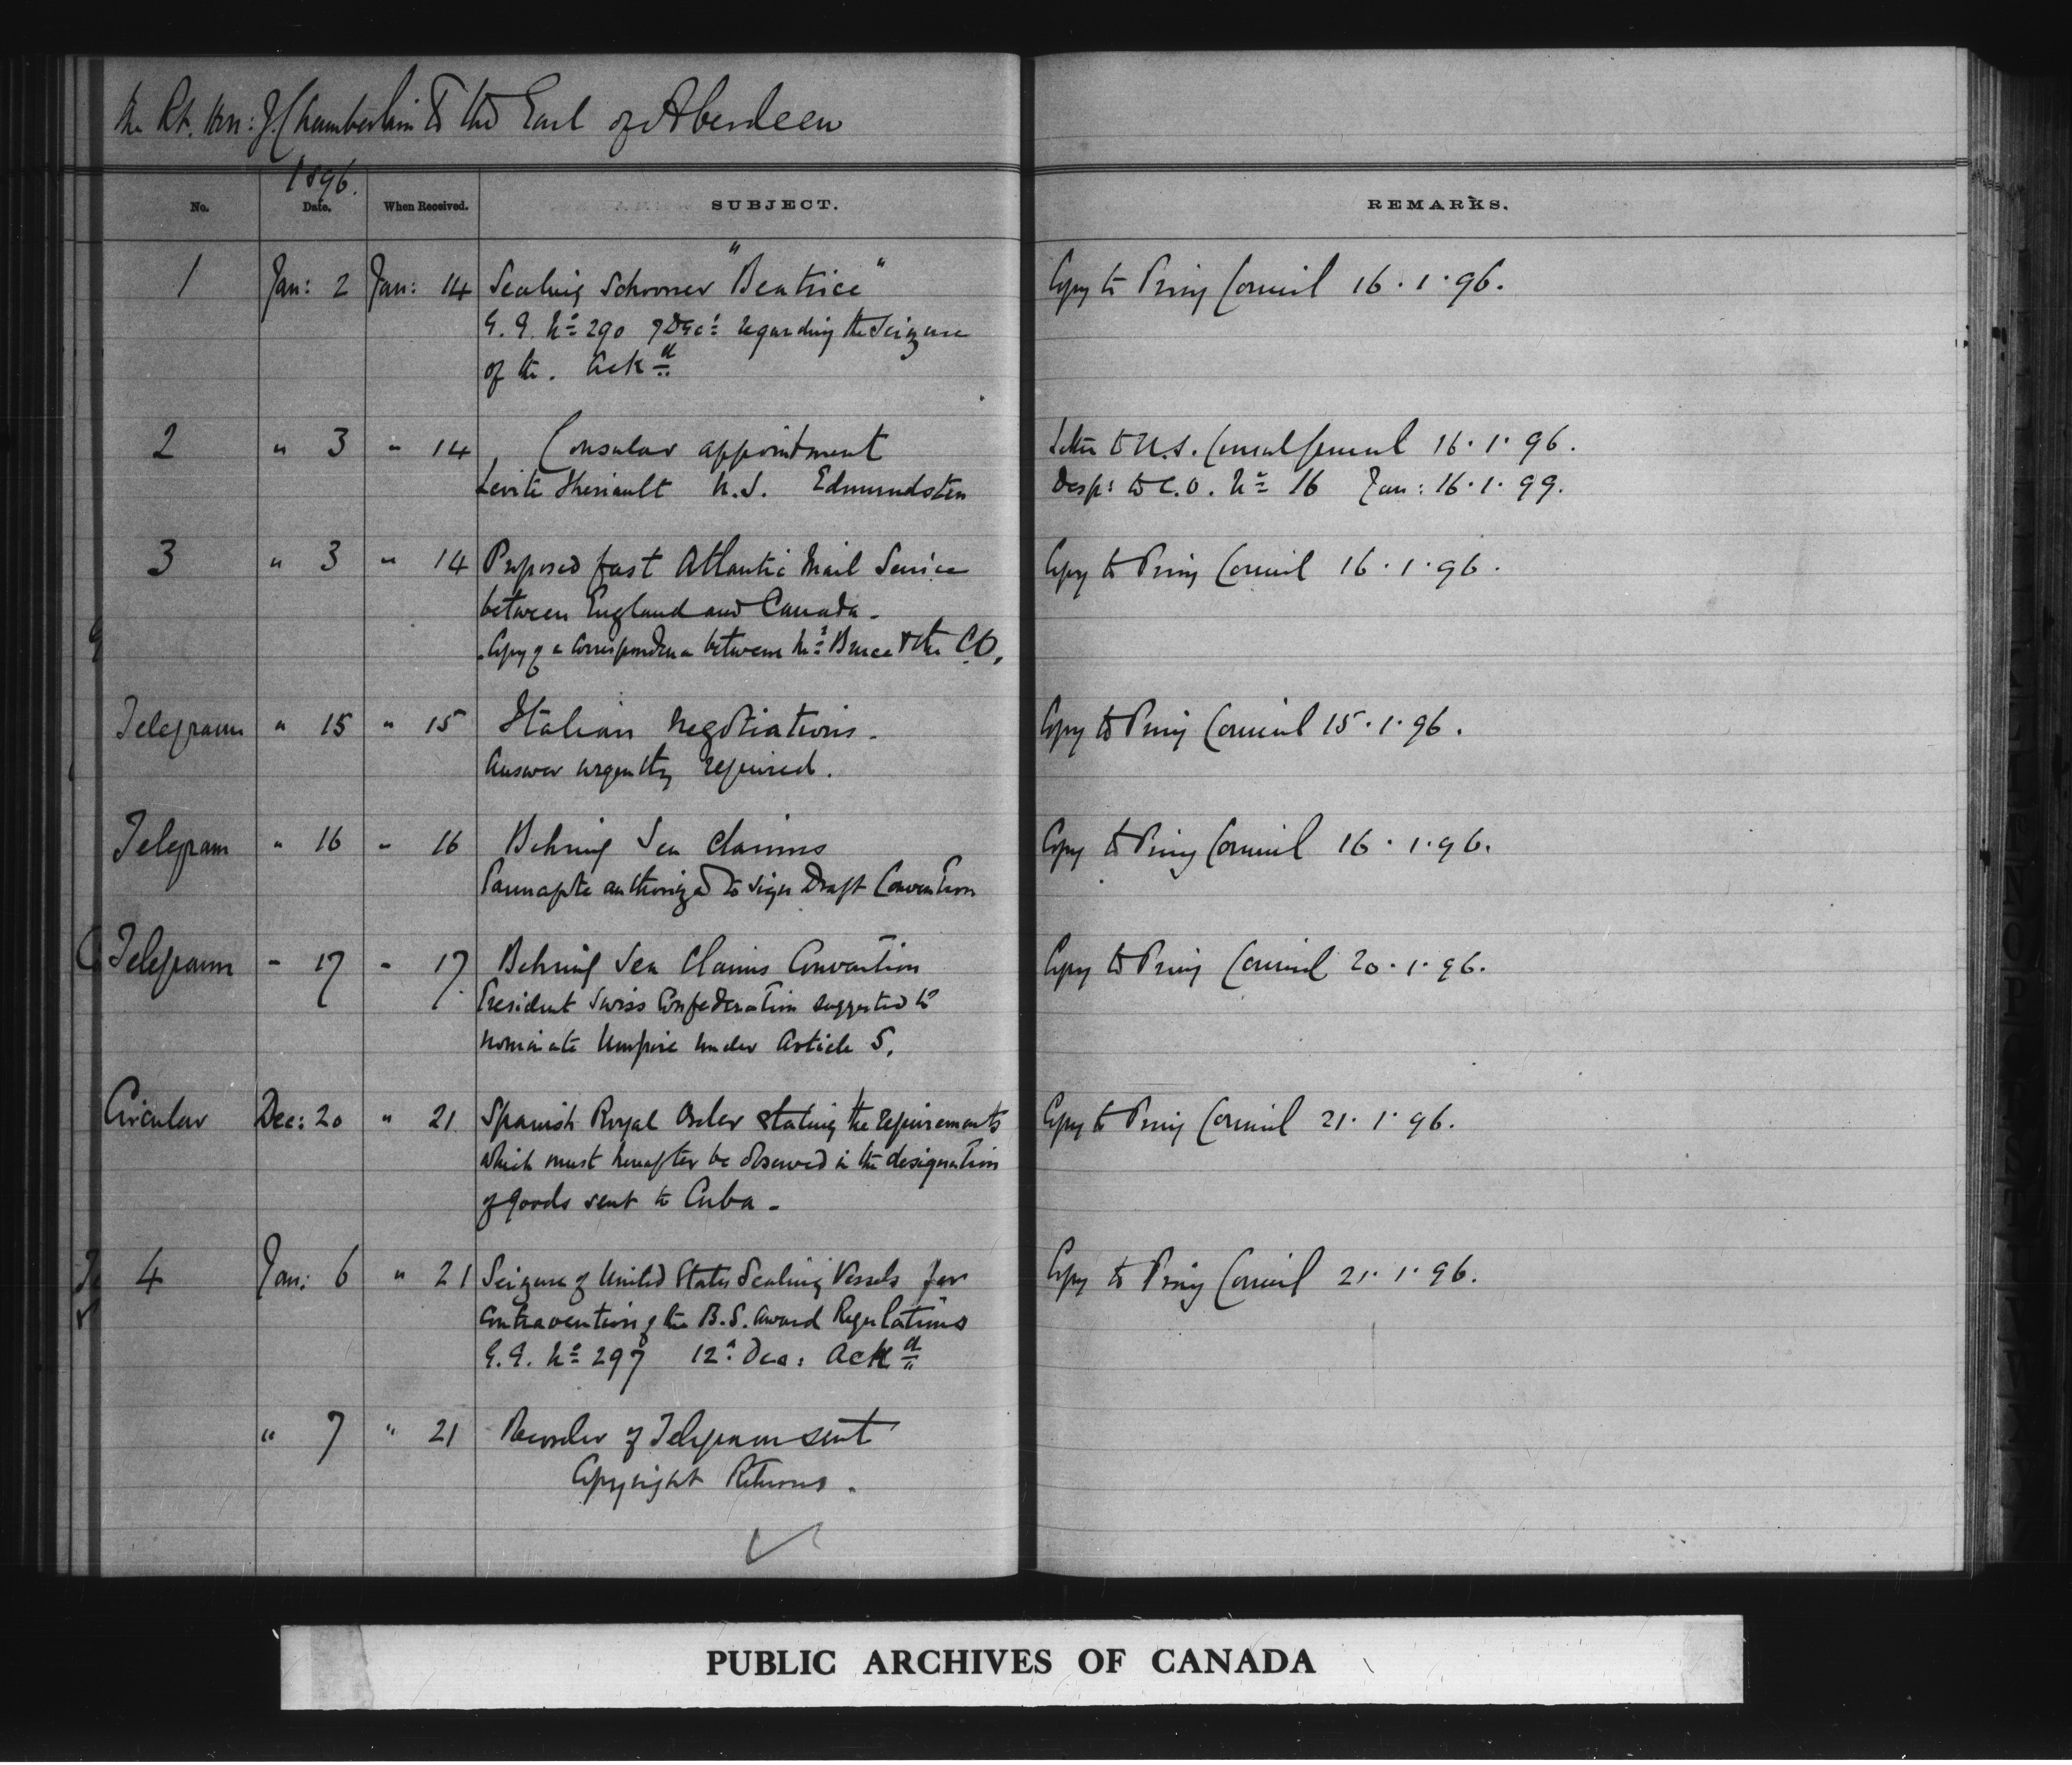 The Rt. Hon: J. Chamberlain to the Earl of Aberdeen
1896.
No. Date. When Received. SUBJECT. REMARKS.
1 Jan: 2 Jan: 14 Sealing Schooner "Beatrice" Copy to Privy Council 16.1.96.
G. G. No 290 7 Dec: regarding the Seizure
of the. Ackd
2 " 3 " 14 Consular appointment Letter to U.S. Consul General 16.1.96.
Levite Theriault U.S. Edmundsten Desp: to C.O. No 16 Jan: 16.1.99.
3 " 3 " 14 Proposed fast Atlantic Mail Service Copy to Privy Council 16.1.96.
between England and Canada.
Copy of a correspondence between Mr Bruce & the C.O.
Telegram " 15 " 15 Italian Negotiations. Copy to Privy Council 15.1.96.
Answer urgently required.
Telegram " 16 " 16 Behring Sea Claims Copy to Privy Council 16.1.96.
Pauncefote authorized to sign Draft Convention
Telegram " 17 " 17 Behring Sea Claims Convention Copy to Privy Council 20.1.96.
President Swiss Confederation suggested to
nominate Umpire under Article 5.
Circular Dec: 20 " 21 Spanish Royal Order stating the requirements Copy to Privy Council 21.1.96.
which must hereafter be observed in the designation
of goods sent to Cuba.
4 Jan: 6 " 21 Seizure of United States Sealing Vessels for Copy to Privy Council 21.1.96.
Contravention of the B.S. Award Regulations
G.G. No 297 12 Dec: Ackd
" 7 " 21 Recorder of Telegram sent
Copyright Returns.
PUBLIC ARCHIVES OF CANADA